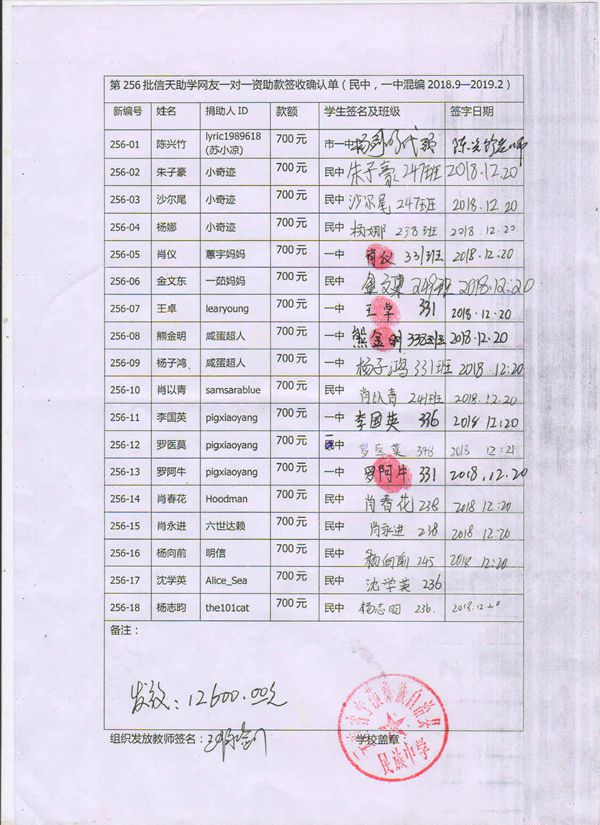 第256批信天助学网友一对一资助款签收确认单（民中，一中混编2018.9—2019.2）
新编号 姓名 捐助人ID 款额 学生签名及班级 签字日期
256-01 陈兴竹 lyric1989618 (苏小凉) 700元 市一中
256-02 朱子豪 小奇迹 700元 民中 朱子豪 247班 2018.12.20
256-03 沙尔尾 小奇迹 700元 民中 沙尔尾 247班 2018.12.20
256-04 杨娜 小奇迹 700元 民中 杨娜 238班 2018.12.20
256-05 肖仪 蕙宇妈妈 700元 一中 肖仪 331班 2018.12.20
256-06 金文东 一茹妈妈 700元 民中 金文東 249班 2018.12.20
256-07 王卓 learyoung 700元 一中 王卓 331 2018.12.20
256-08 熊金明 咸蛋超人 700元 一中 熊金明 2018.12.20
256-09 杨子鸿 咸蛋超人 700元 一中 杨子鸿 331班 2018.12.20
256-10 肖以青 samsarablue 700元 民中 肖以青 241班 2018.12.20
256-11 李国英 pigxiaoyang 700元 一中 李国英 336 2018 12.20
256-12 罗医莫 pigxiaoyang 700元 民中 罗医莫 348 2018 12.21
256-13 罗阿牛 pigxiaoyang 700元 一中 罗阿牛 331 2018.12.20
256-14 肖春花 Hoodman 700元 民中 肖春花 238 2018 12.20
256-15 肖永进 六世达赖 700元 民中 肖永进 238 2018 12.20
256-16 杨向前 明信 700元 民中 杨向前 245 2018 12.20
256-17 沈学英 Alice_Sea 700元 民中 沈学英 236
256-18 杨志昀 the101cat 700元 民中 杨志昀 236. 2018.12.20
备注：
发放：12600.00元
组织发放教师签名： 学校盖章：
民族中学